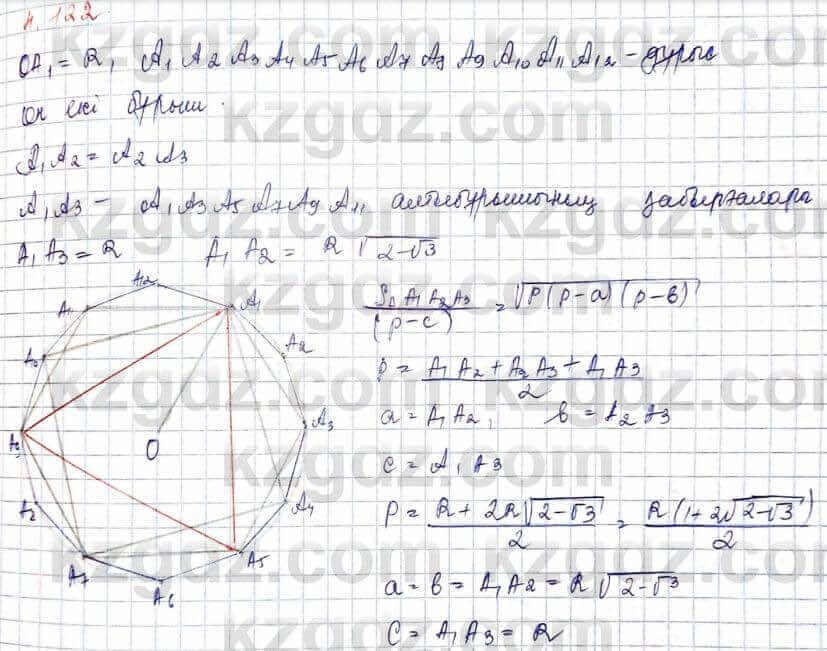 4.122.
OA₁ = R, A₁ A₂ A₃ A₄ A₅ A₆ A₇ A₈ A₉ A₁₀ A₁₁ A₁₂ - дұрыс
он екі бұрыш.
A₁A₂ = A₂A₃
A₁A₃ - A₁A₃A₅A₇A₉A₁₁ алтыбұрышының қабырғалары
A₁A₃ = R A₁A₂ = R√(2-√3)
S△A₁A₂A₃/(p-c) = √(P(P-a)(p-b))
p = (A₁A₂ + A₂A₃ + A₁A₃)/2
a = A₁A₂, b = A₂A₃
c = A₁A₃
P = (R + 2R√(2-√3))/2 = R(1+2√(2-√3))/2
a = b = A₁A₂ = R√(2-√3)
C = A₁A₃ = R
A₁₂
A₁
A₁
A₂
A₃
O
A₄
A₇
A₅
A₆
kzgdz.com